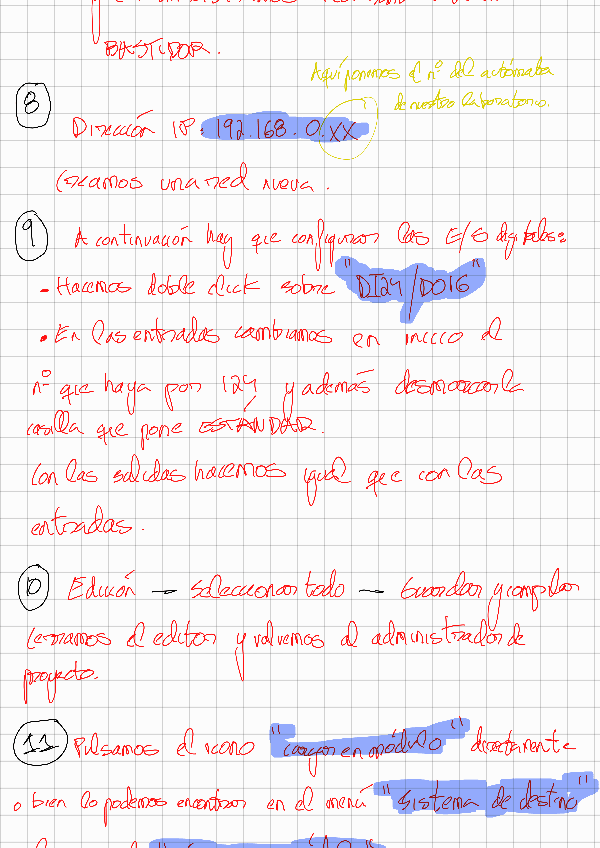 BASTIDOR.
Aquí ponemos el nº del autómata
de nuestro laboratorio.
8
Dirección IP: 192.168.0.XX
Creamos una red nueva.
9 A continuación hay que configurar las E/S digitales:
- Hacemos doble click sobre "DI24/DO16"
• En las entradas cambiamos en inicio el
nº que haya por 124 y además desmarcar la
casilla que pone ESTÁNDAR.
Con las salidas hacemos igual que con las
entradas.
10 Edición — Seleccionar todo — Guardar y compilar
Cerramos el editor y volvemos al administrador de
proyecto.
11 Pulsamos el icono "cargar en módulo" directamente
o bien lo podemos encontrar en el menú "Sistema de destino"